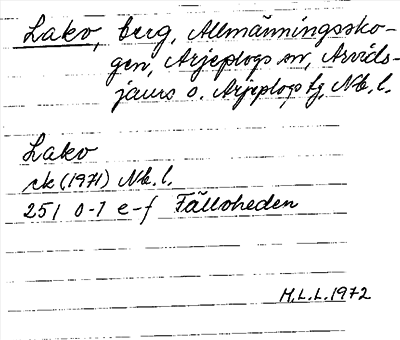 Lako, berg, Allmänningssko-
gen, Arjeplogs sn, Arvids-
jaurs o. Arjeplogs tg, Nb. l.
Lako
rk (1971) Nb. l.
251 0-1 e-f Fälloheden
M.L.L. 1972